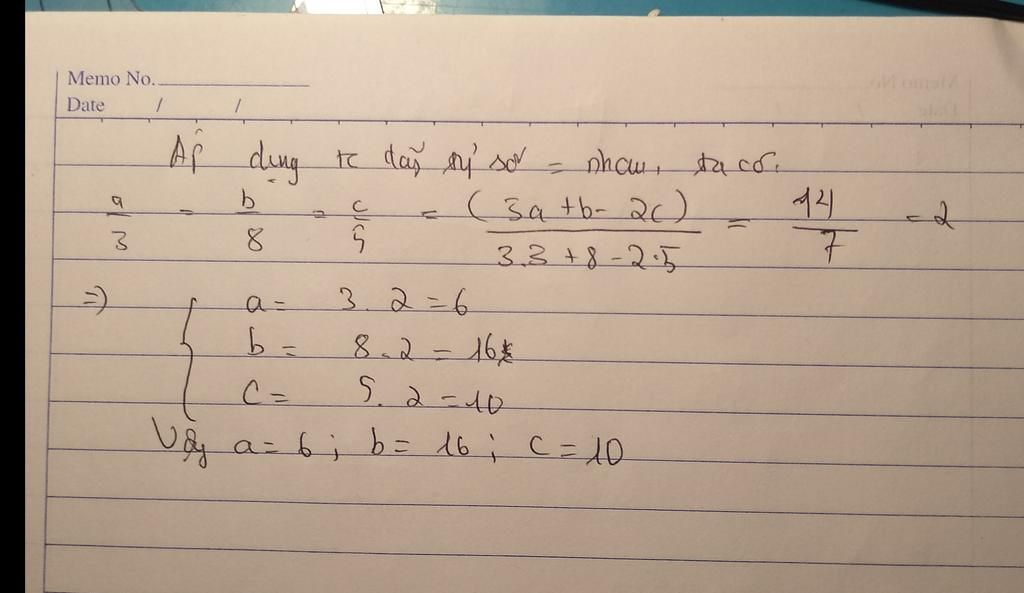 Memo No.
Date / /
Áp dụng tc dãy tỷ số = nhau, ta có.
a/3 = b/8 = c/5 = (3a + b - 2c)/(3.3 + 8 - 2.5) = 14/7 = 2
=> { a = 3. 2 = 6
b = 8. 2 = 16
c = 5. 2 = 10
Vậy a = 6; b = 16; c = 10